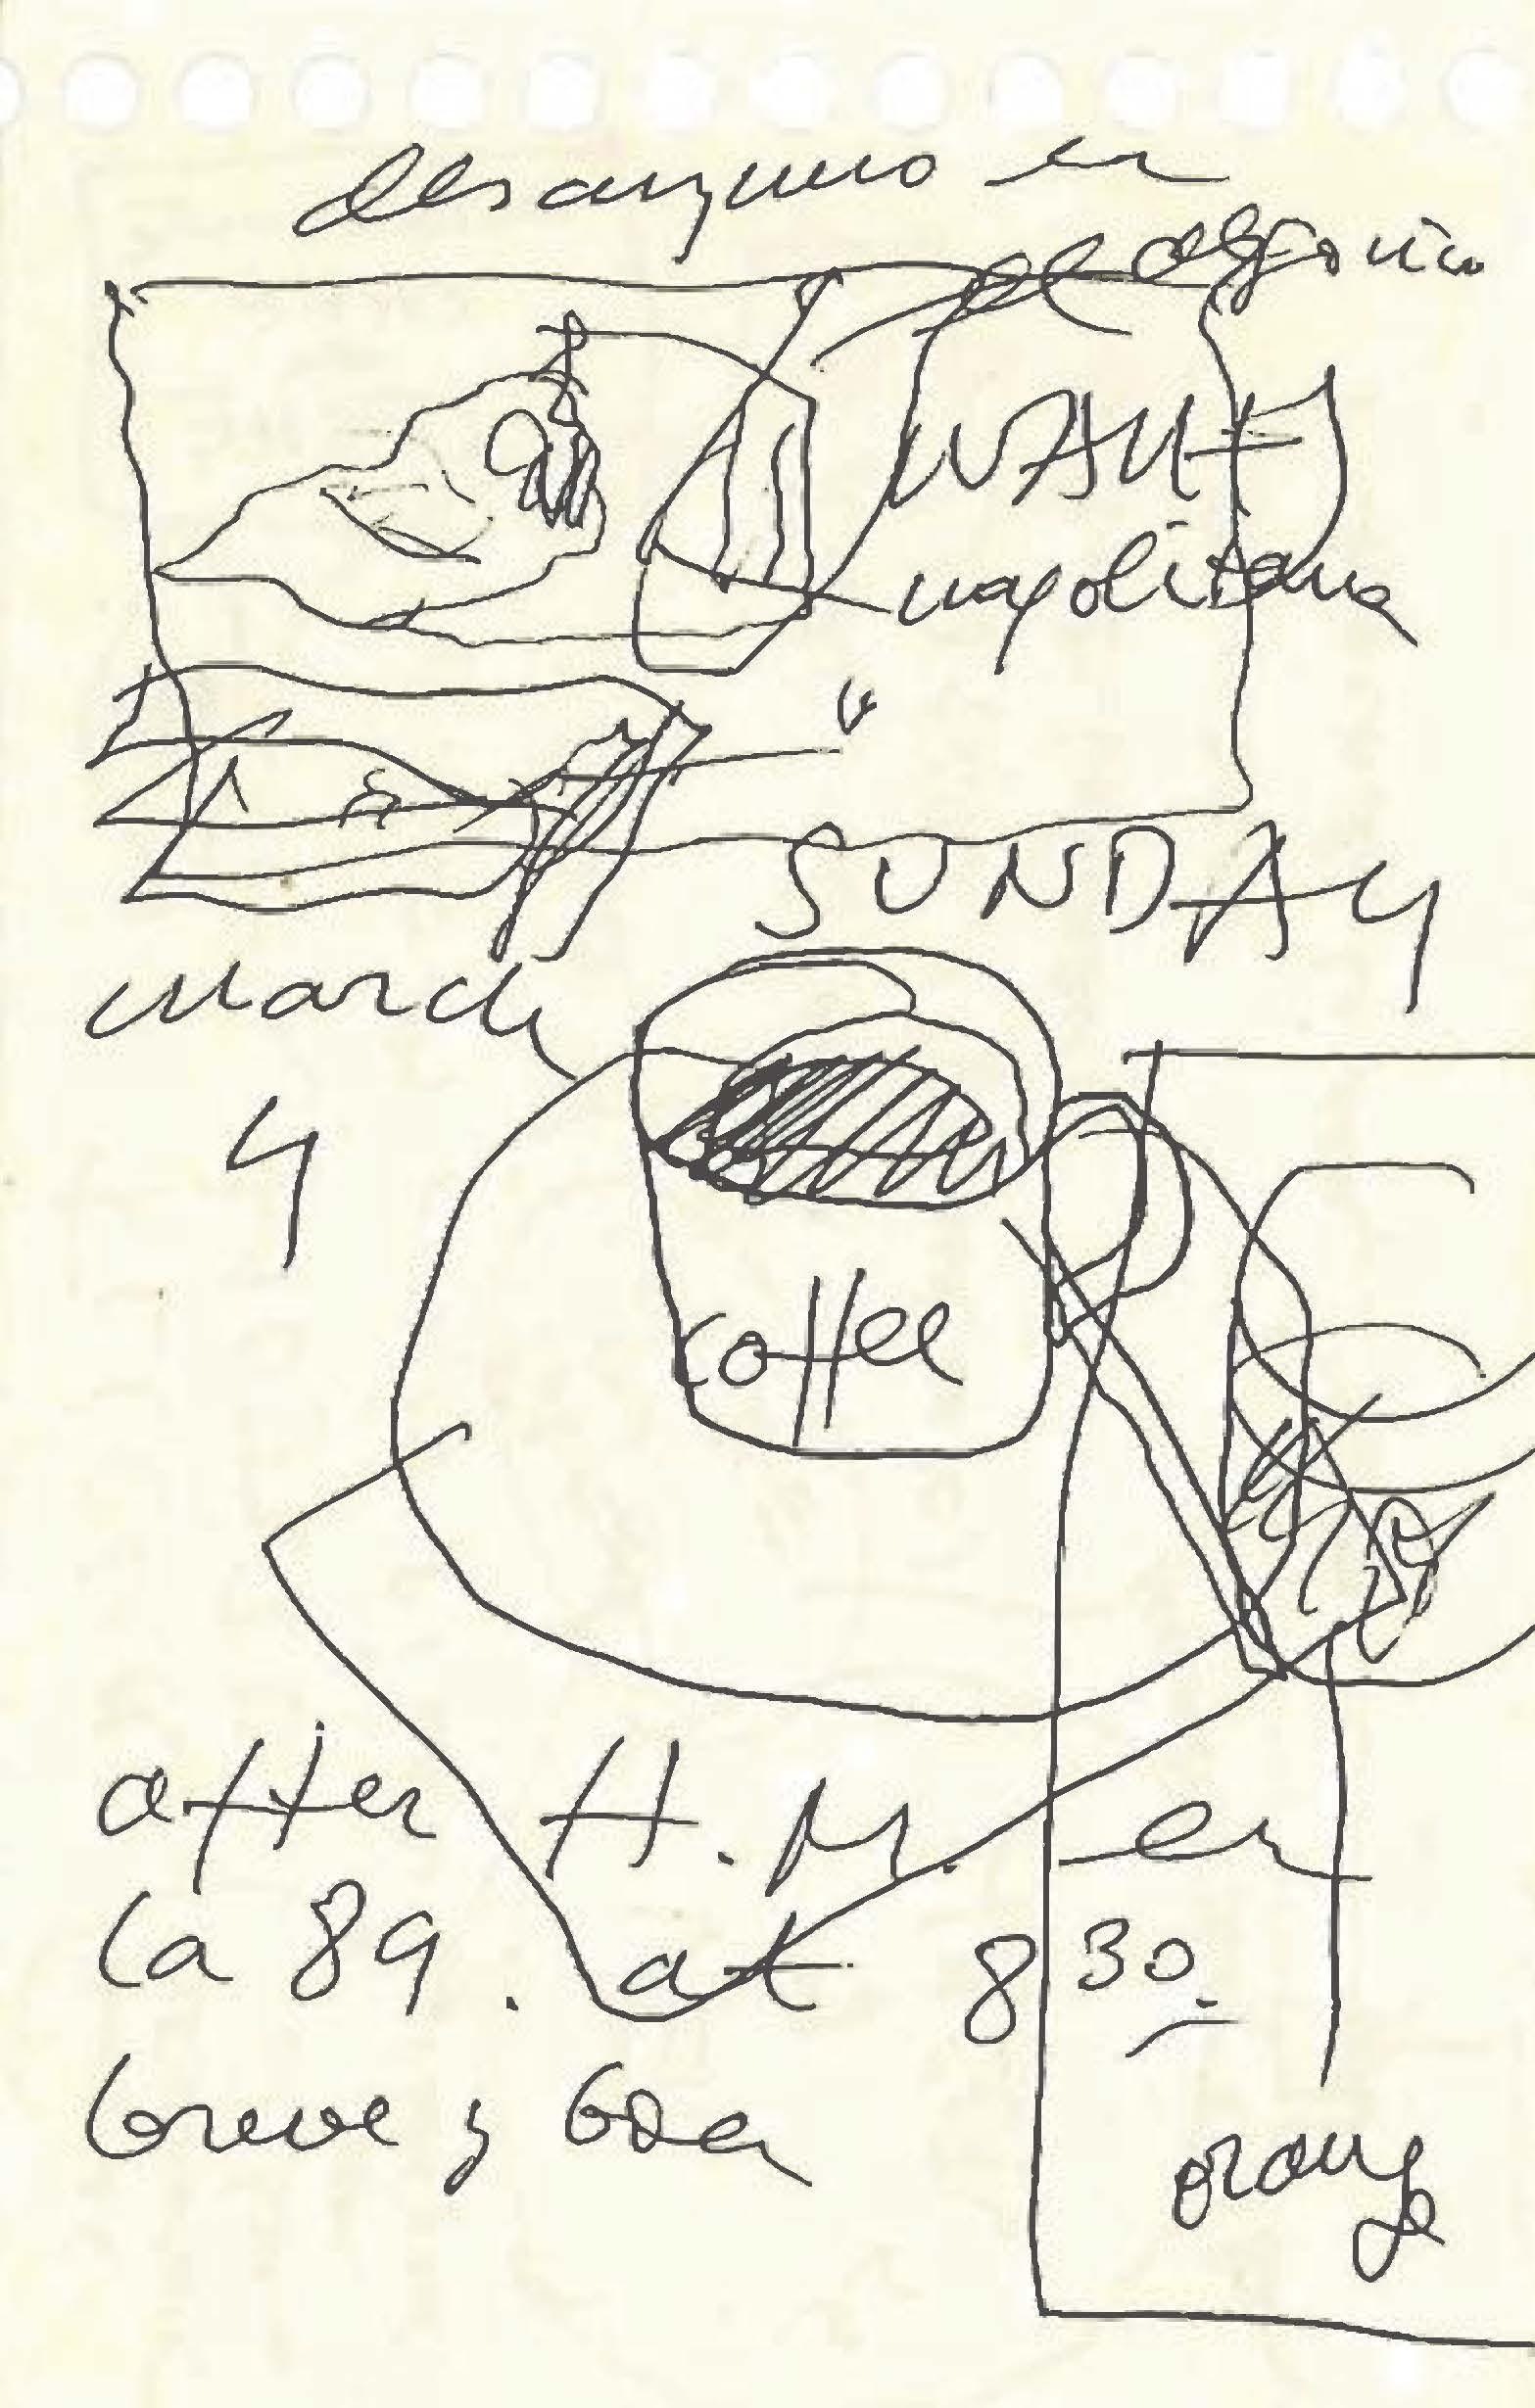 desayuno en
el
napolitana
"
SUNDAY
march
4
coffee
after H.M. en
la 89. at 8 30.
breve y
orange